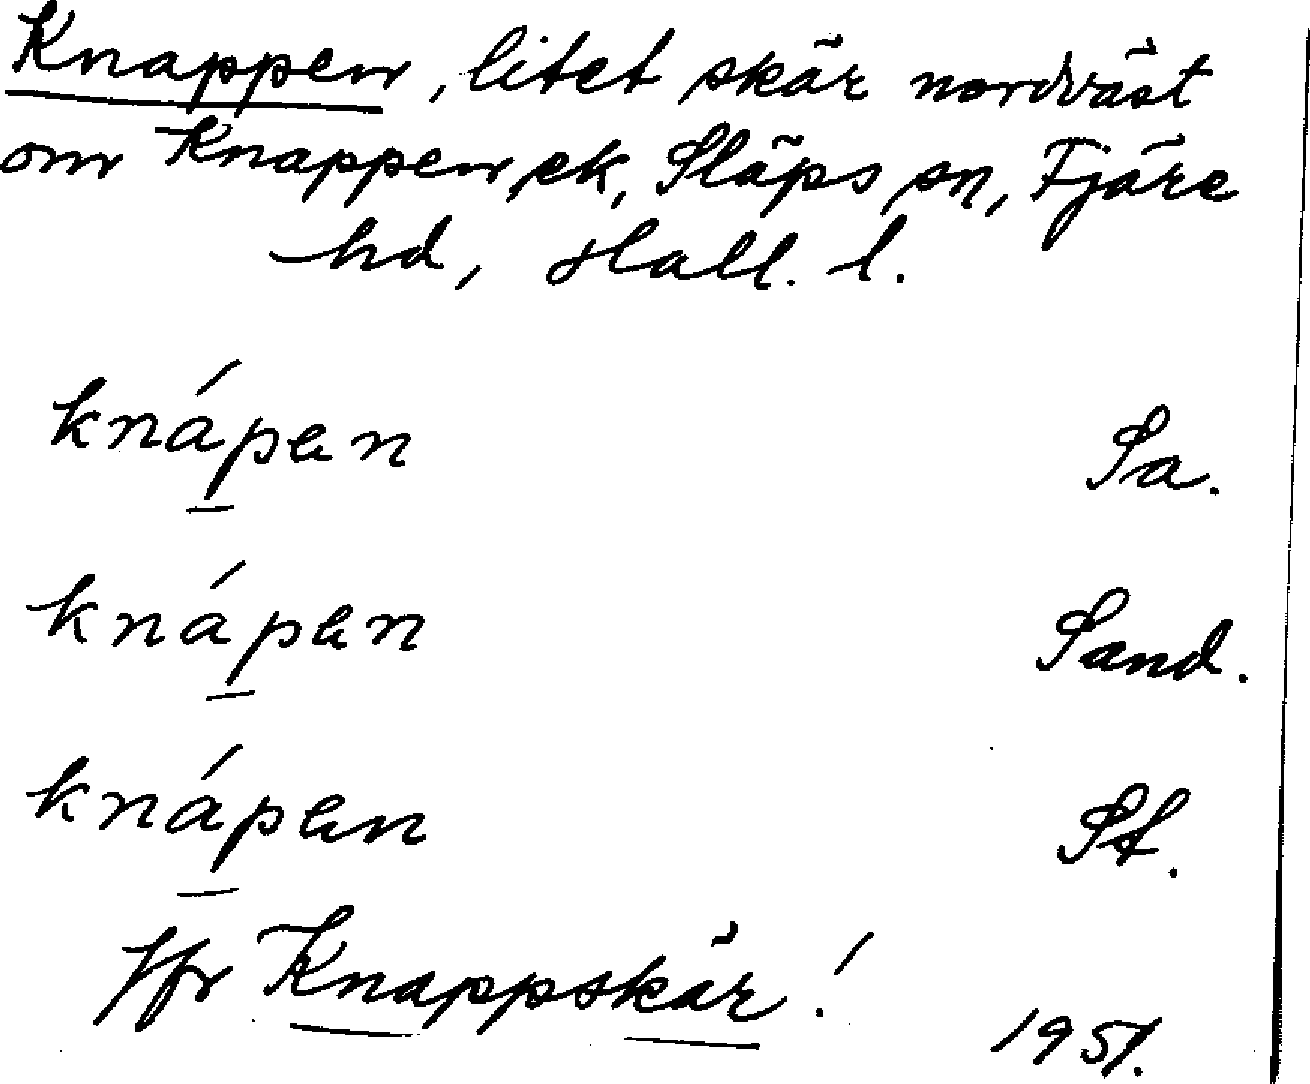 Knappen, litet skär nordväst
om Knappen, ek, Släps sn, Fjäre
hd, Hall. l.
knápan Sa.
knápan Sand.
knápan St.
Jfr Knappskär!
1951.